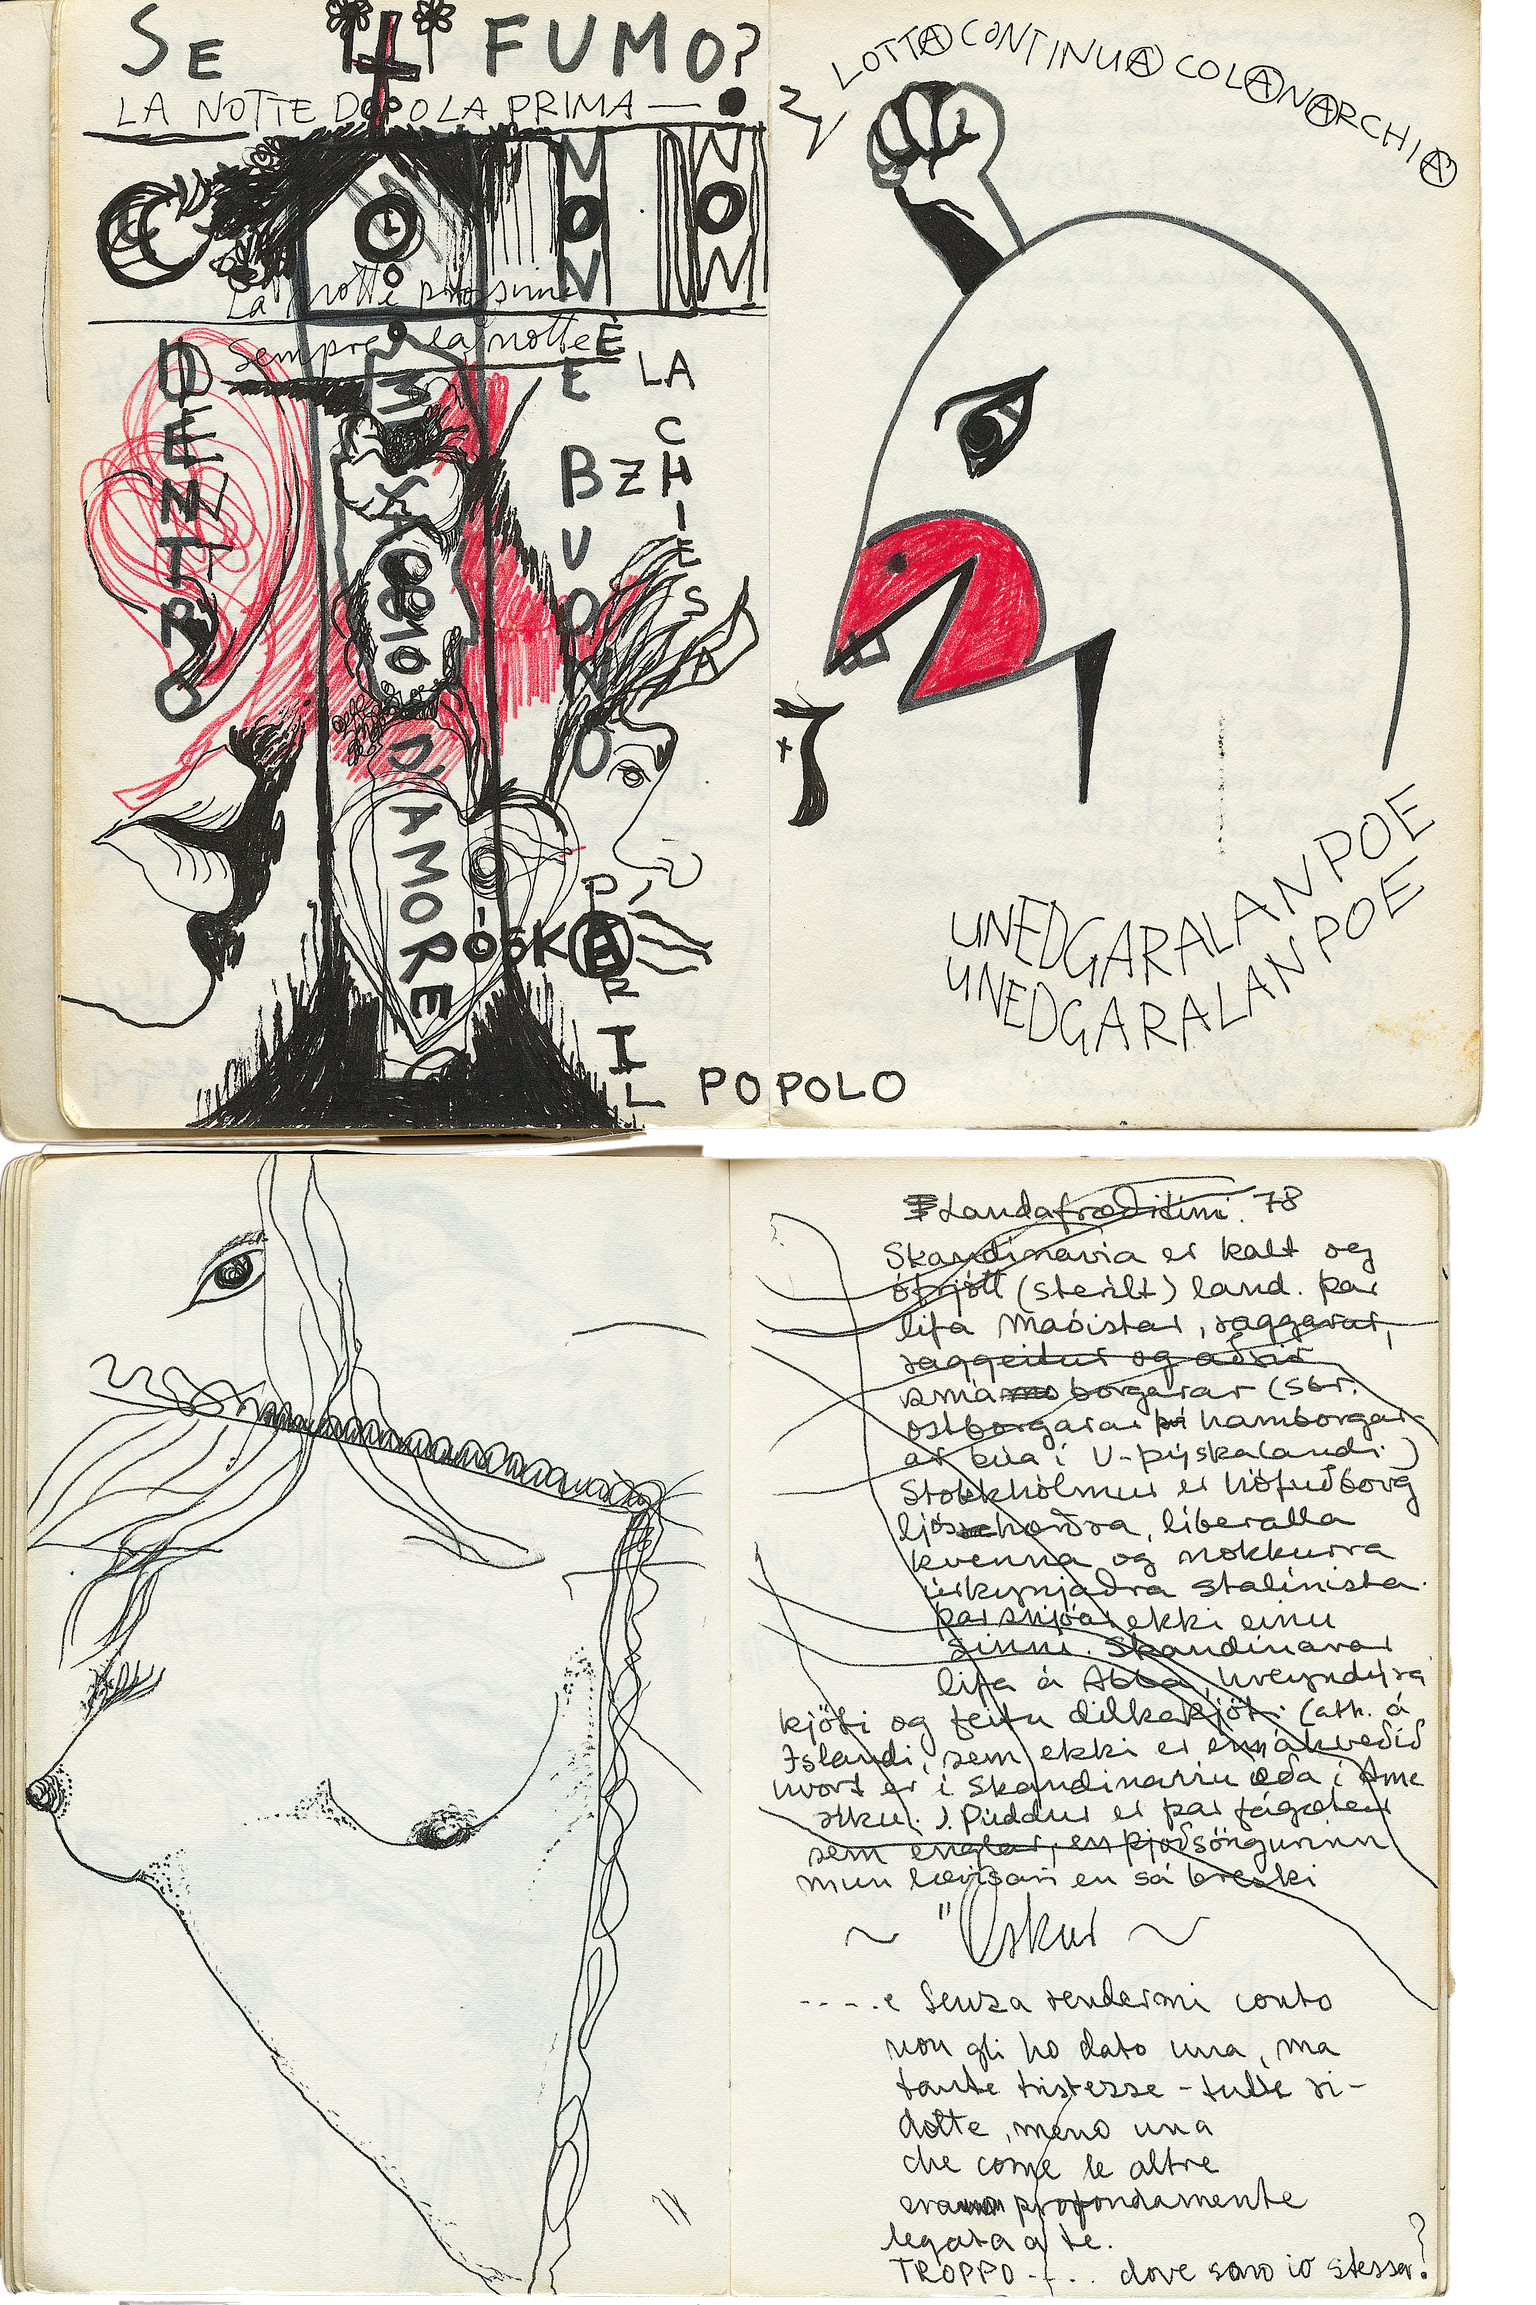 SE IL FUMO?
LA NOTTE DOPO LA PRIMA —
NON
NON
La notte prossima
Sempre la notte
DENTRO
MI
D'AMORE
E BUONO
È LA CHIESA
ÖSKAR
PER IL POPOLO
LOTTA CONTINUA COLANARCHIA
UNEDGARALANPOE
UNEDGARALANPOE
Landafræðitími. 78
Skandinavia er kalt og
ófrjótt (sterilt) land. þar
lifa Maóistar, raggarar,
raggeitur og aðrir
smáborgarar (sbr.
ostborgarar þá hamborgar-
ar búa í V-þýskalandi.)
Stokkhólmur er höfuðborg
ljóshærðra, liberalla
kvenna og nokkurra
úrkynjaðra stalínista.
þar snjóar ekki einu
sinni. Skandinavar
lifa á Abba, hreyndýra
kjöti og feitu dilkakjöti. (ath. á
Islandi, sem ekki er enn ákveðið
hvort er í Skandinavíu eða í Ame
ríku.) Píddur er þar fágætar
sem englar, en þjóðsöngurinn
mun lævísari en sá breski
~ "Öskur ~
-----e senza rendermi conto
non gli ho dato una, ma
tante tristezze - tutte ri-
dotte, meno una
che come le altre
era profondamente
legata a te.
TROPPO --.. dove sono io stessa?